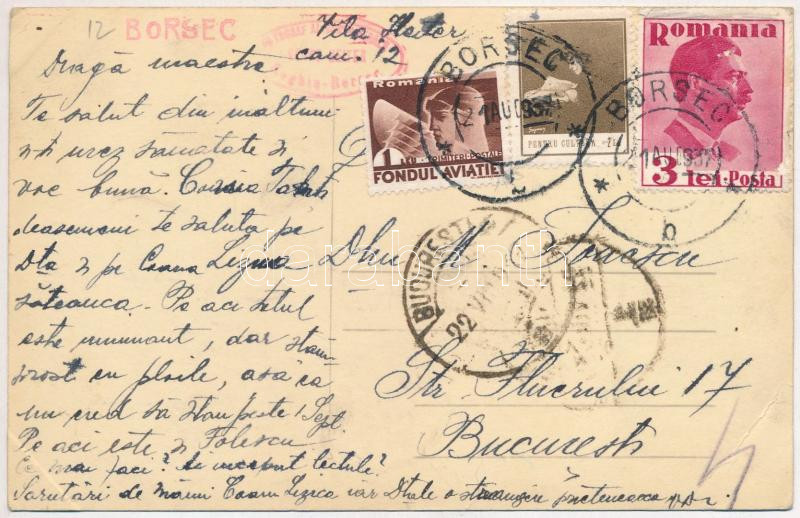 12 BORSEC
Vila Hater
cam. 12
Dragă maestre
Te salut din înălțimi
și urez sănătate și
voe bună. Coana
deasemeni te saluta pe
Dta și pe Coana Lizica
săteanca. Pe aci totul
este minunant, dar stăm
prost cu ploile, asă ca
nu cred să stau peste 1 Sept.
Pe aci este și Folescu
Ce mai faci? Ai inceput lectule?
Sarutări de mâini Coanei Lizica iar Dtale o strangere prieteneasca
Romania
1 LEU TRIMITERI-POSTALE
FONDUL AVIATIEI
PENTRU CULTURĂ
Romania
3 lei Posta
BORSEC
21 AU 0937
BORSEC
21 AU 0937
b
BUCUREȘTI
22 VIII
Dlui M.
Str Flucrului 17
Bucuresti
darabanth